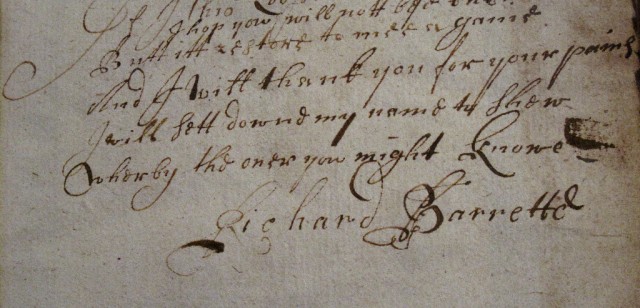 I hop you will nott bee
Butt itt restore to mee a game
And I will thank you for your paines
I will sett downe my name to shew
Wherby the oner you might Knowe
Richard Barrette